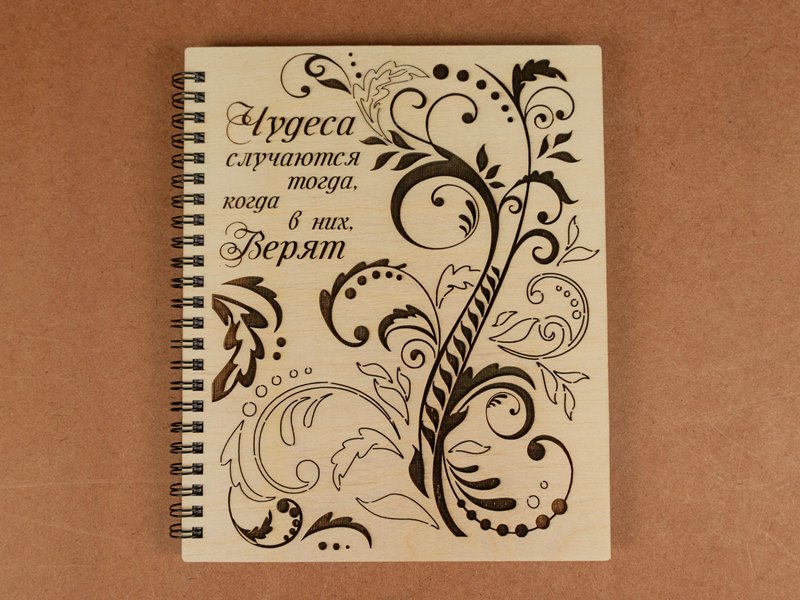 Чудеса
случаются
тогда,
когда
в них,
Верят